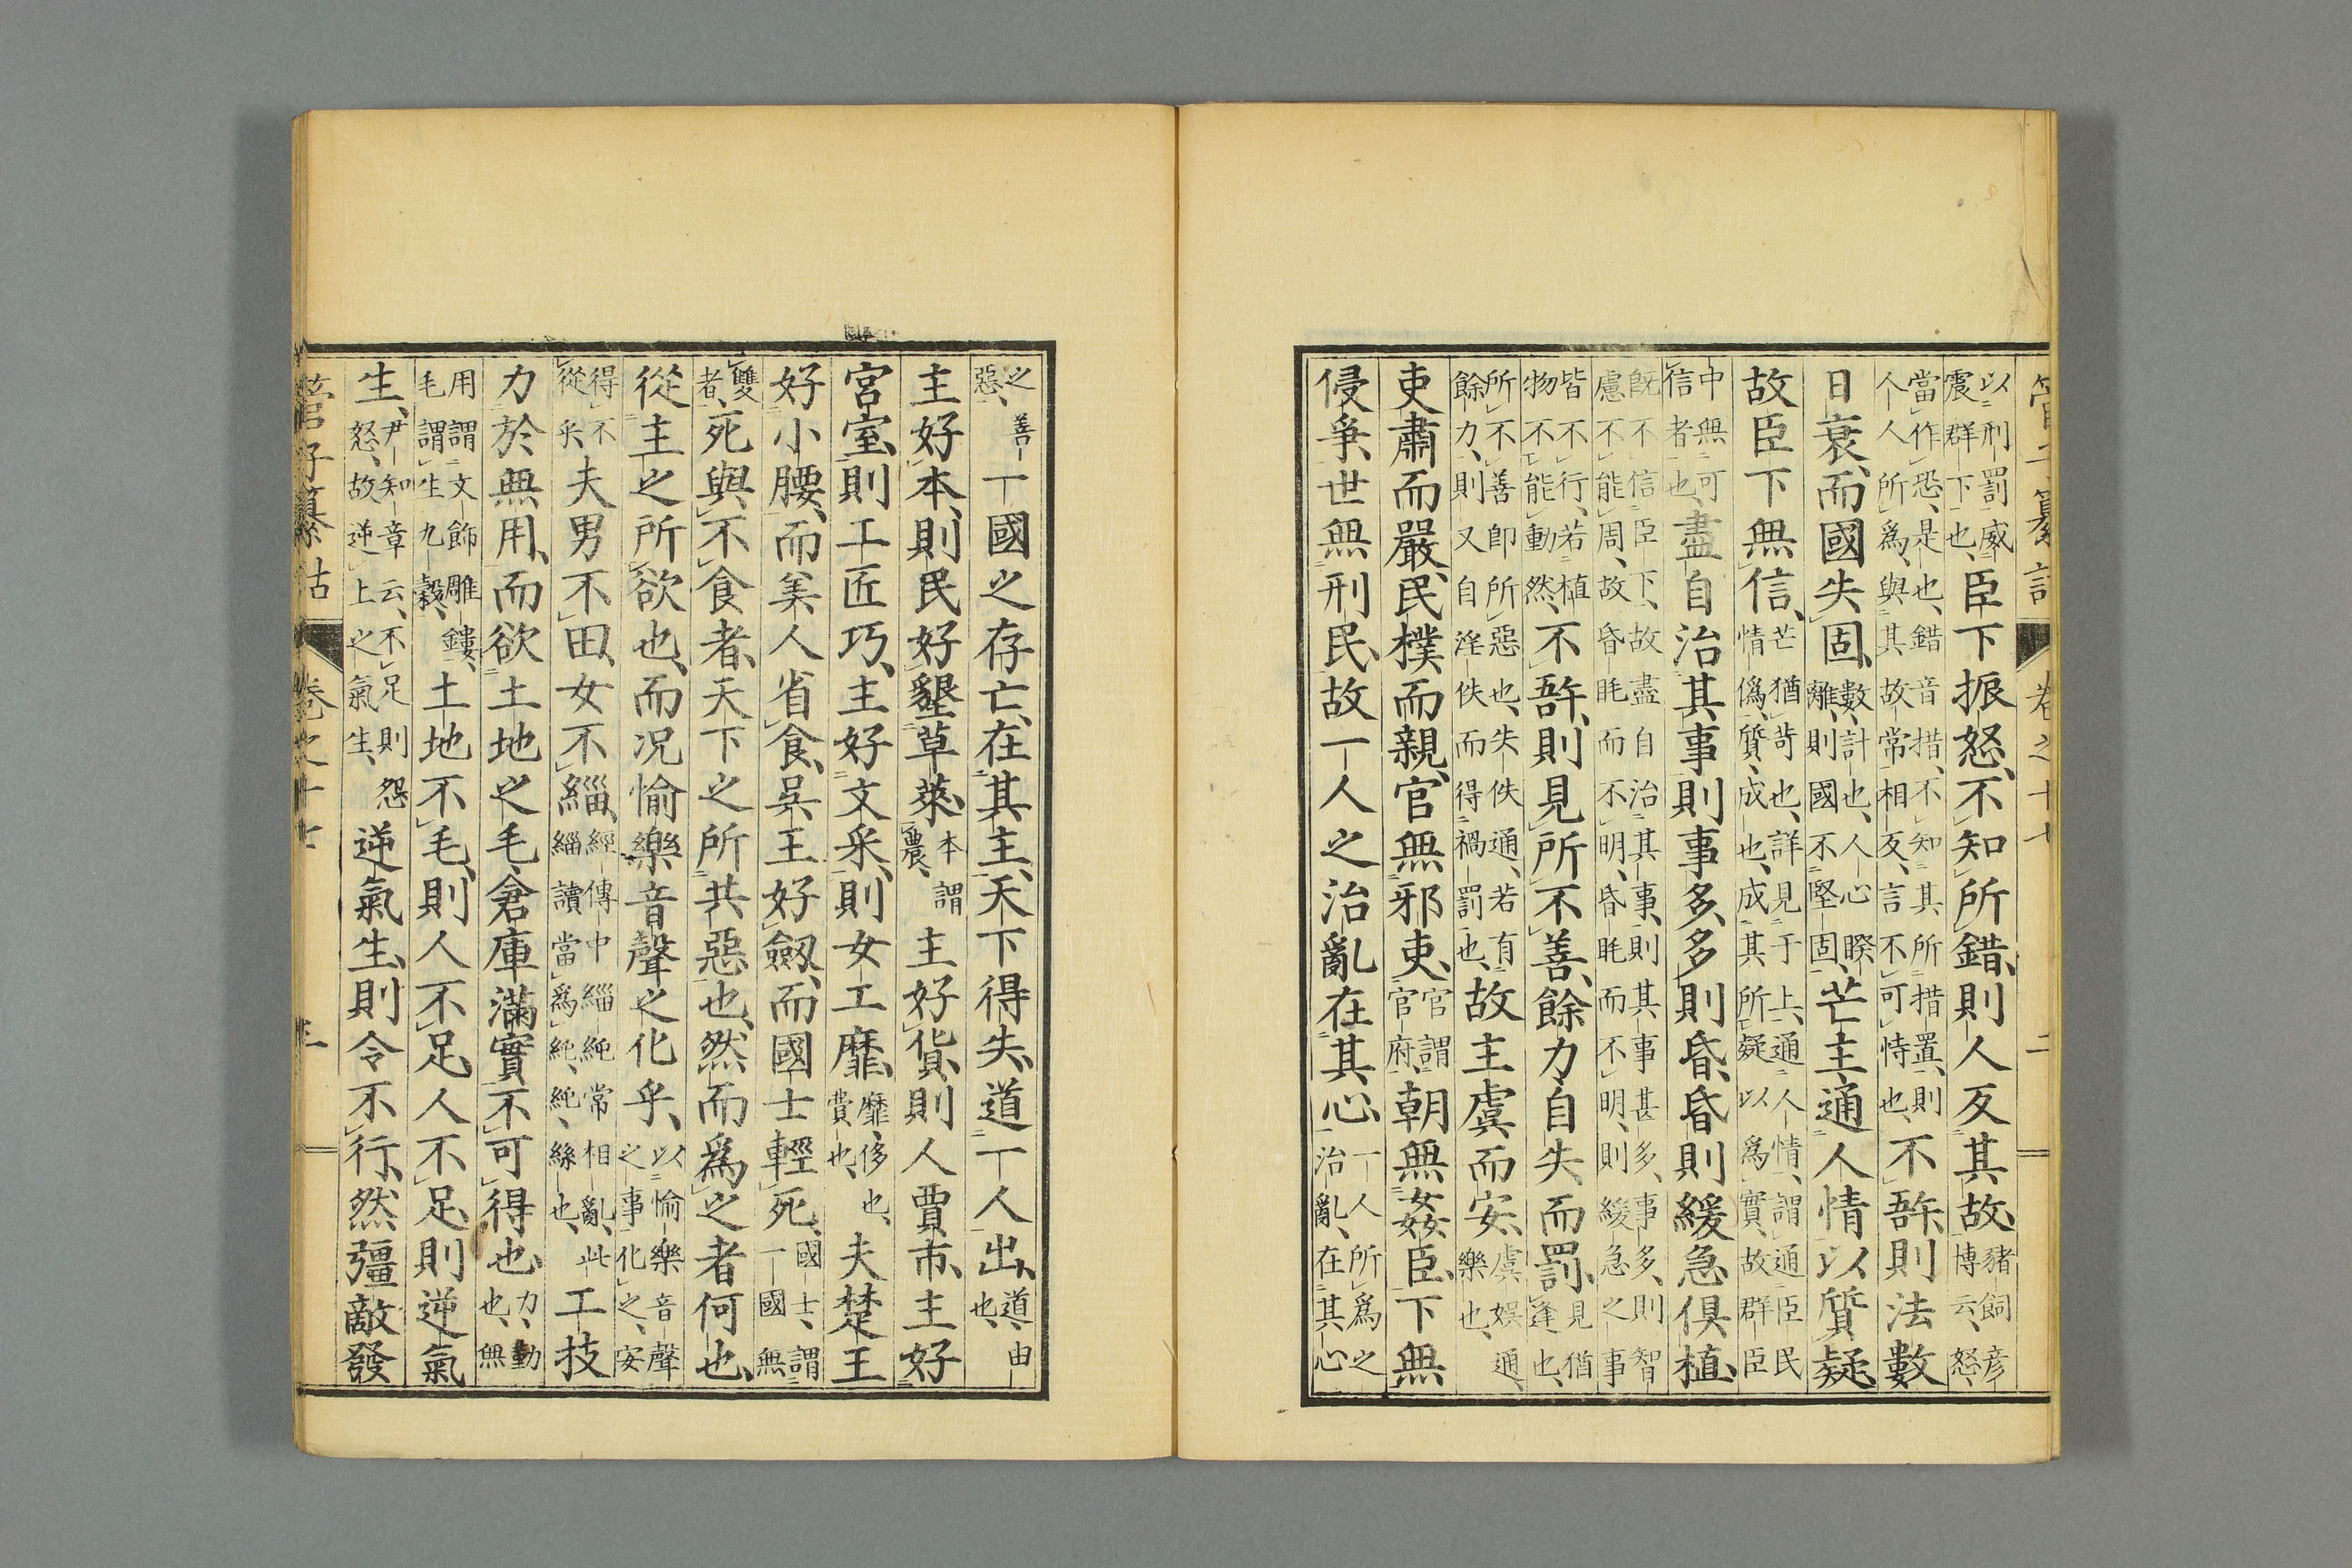 管子纂詁 卷之十七 二
以刑罰威
震群下也、
臣下振怒、不知所錯、則人反其故、
豬飼彥
博云、怒、
當作恐、是也、錯音措、不知其所措置、則
人人所爲、與其故常相反、言不可恃也、
不誶、則法數
日衰、而國失固、
數、計也、人心睽
離、則國不堅固、
芒主、通人情以質疑、
故臣下無信、
芒猶苛也、詳見于上、通人情、謂通臣民
情僞、質、成也、成其所疑以爲實、故群臣
中無可
信者也、
盡自治其事、則事多、多則昏、昏則緩急俱植、
既不信臣下、故盡自治其事、則其事甚多、事多、則智
慮不能周、故昏眊而不明、昏眊而不明、則緩急之事
皆不行、若植
物不能動然、
不誶、則見所不善、餘力自失、而罰、
見猶
逢也、
所不善即所惡也、失佚通、若有
餘力、則又自淫佚而得禍罰也、
故主虞而安、
虞娛通、
樂也、
吏肅而嚴、民樸而親、官無邪吏、
官謂
官府、
朝無姦臣、下無
侵爭、世無刑民、故一人之治亂在其心、
一人所爲之
治亂、在其心
之善
惡、
一國之存亡、在其主、天下得失、道一人出、
道、由
也、
主好本、則民好墾草萊、
本謂
農、
主好貨、則人賈市、主好
宮室、則工匠巧、主好文采、則女工靡、
靡、侈也、
費也、
夫楚王
好小腰、而美人省食、吳王好劔、而國士輕死、
國士、謂
一國無
雙
者、
死與不食者、天下之所共惡也、然而爲之者何也、
從主之所欲也、而况愉樂音聲之化乎、
以愉樂音聲
之事化之、安
得不
從乎、
夫男不田、女不緇、
經傳中緇純常相亂、此
緇讀當爲純、純、絲也、
工技
力於無用、而欲土地之毛、倉庫滿實、不可得也、
力、勤
也、無
用謂文飾雕鏤、
毛謂生九穀、
土地不毛、則人不足、人不足、則逆氣
生、
尹知章云、不足則怨
怒、故逆上之氣生、
逆氣生、則令不行、然彊敵發
管子纂詁 卷之十七 三